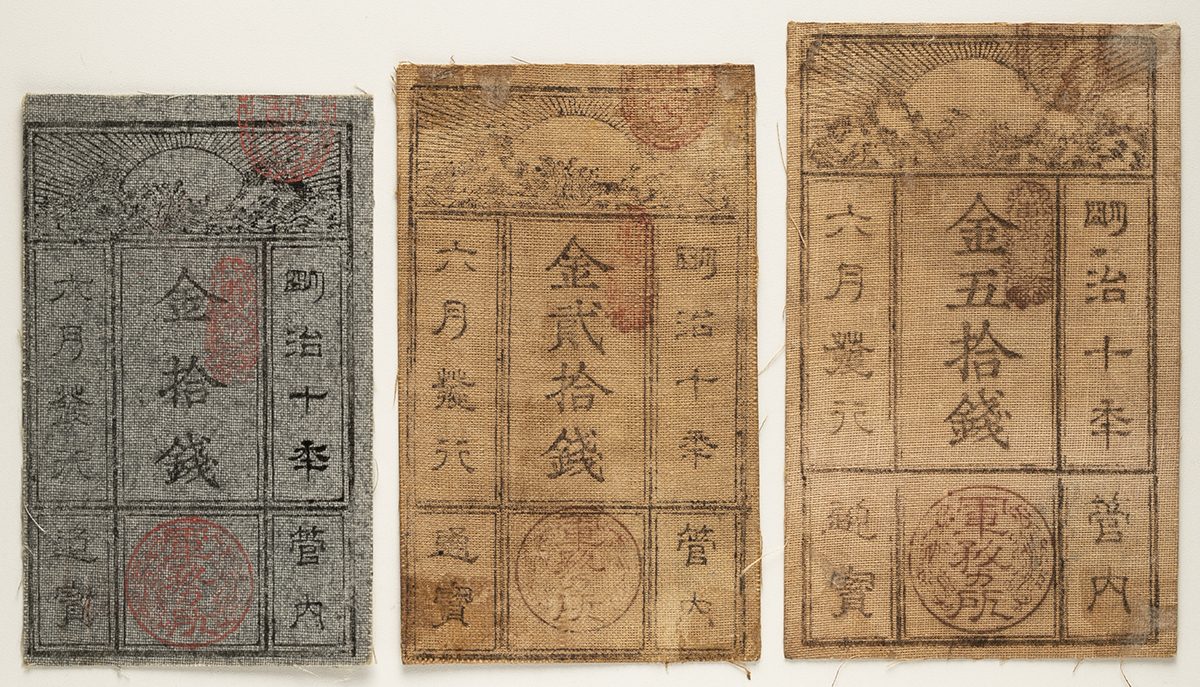 明治十年
管内
金拾錢
軍務所
六月發行
通寳
明治十年
管内
金貳拾錢
軍務所
六月發行
通寳
明治十年
管内
金五拾錢
軍務所
六月發行
通寳